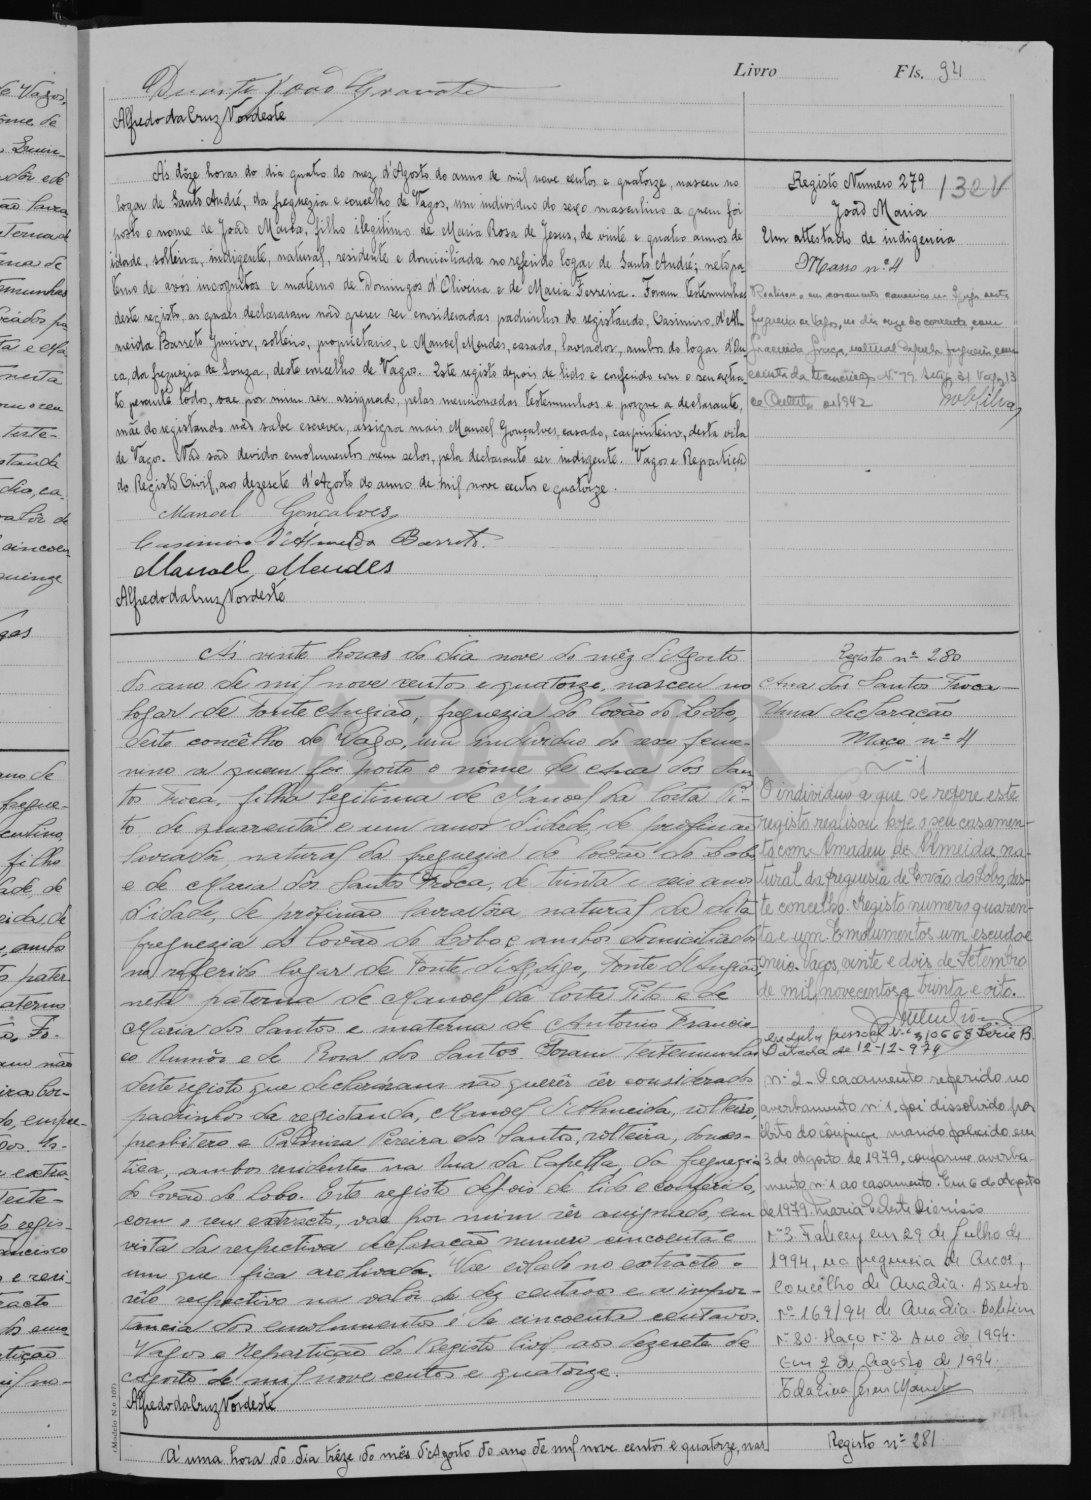 Livro Fls. 94
Duarte João Gravato
Alfredo da Cruz Nordeste
Ás dôze horas do dia quatro do mez d'Agosto do anno de mil nove centos e quatorze, nasceu no
logar de Santo André, da freguezia e concelho de Vagos, um individuo do sexo masculino a quem foi
posto o nome de João Maria, filho ilegitimo de Maria Rosa de Jesus, de vinte e quatro annos de
idade, solteira, indigente, natural, residente e domiciliada no referido logar de Santo André; neto pa-
terno de avós incognitos e materno de Domingos d'Oliveira e de Maria Ferreira. Foram testemunhas
deste registo, as quaes declararam não querer ser consideradas padrinhos do registando, Casimiro d'Al-
meida Barreto Junior, solteiro, proprietario, e Manoel Mendes, casado, lavrador, ambos do logar d'Ou-
ca, da freguezia de Souza, deste concelho de Vagos. Este registo depois de lido e conferido com o seu extra-
to perante todos, vae por mim ser assignado, pelas mencionadas testemunhas e porque a declarante,
mãe do registando não sabe escrever, assigna mais Manoel Gonçalves, casado, carpinteiro, desta vila
de Vagos. Não são devidos emolumentos nem selos, pela declarante ser indigente. Vagos e Repartição
do Registo Civil, aos dezesete d'Agosto do anno de mil nove centos e quatorze.
Manoel Gonçalves
Casimiro d'Almeida Barreto
Manoel Mendes
Alfredo da Cruz Nordeste
Registo Numero 279 132V
João Maria
Um attestado de indigencia
Masso nº 4
Realisou o seu casamento canonico na Igreja desta
freguesia de Vagos, no dia onze do corrente com
Graceida Graça, natural daquela freguesia, com
N.º 79
de Outubro de 1942
Silva
Ás vinte horas do dia nove do mêz d'Agosto
do ano de mil nove centos e quatorze, nasceu no
logar de Fonte Angião, freguezia do Covão do Lobo,
deste concêlho de Vagos, um individuo do sexo femi-
nino a quem foi posto o nôme de Ana dos San-
tos Troca, filha legitima de Manoel da Costa Pi-
to, de quarenta e um anos d'idade, de profissão
lavrador, natural da freguezia do Covão do Lobo
e de Maria dos Santos Troca, de trinta e seis anos
d'idade, de profissão lavradora, natural da dita
freguezia do Covão do Lobo e ambos domiciliados
no referido lugar de Fonte d'Agdigo, Fonte d'Angião
neta paterna de Manoel da Costa Pito e de
Maria dos Santos e materna de Antonio Francis-
co Rumôr e de Rosa dos Santos. Foram testemunhas
deste registo que declararam não querêr sêr considerados
padrinhos da registanda, Manoel d'Almeida, solteiro,
presbitero e Palmira Pereira dos Santos, solteira, domes-
tica, ambos residentes na Rua da Capella, da freguezia
do Covão do Lobo. Este registo depois de lido e conferido,
com o seu extracto, vae por mim sêr assignado, em
vista da respectiva declaração numero cincoenta e
um que fica archivada. Vae colado no extracto o
sêlo respectivo na valôr de dez centavos e a impor-
tancia dos emolumentos é de cincoenta centavos.
Vagos e Repartição do Registo Civil aos dezesete de
Agosto de mil nove centos e quatorze.
Alfredo da Cruz Nordeste
Registo nº 280
Ana dos Santos Troca
Uma declaração
Maço nº 4
nº 1
O individuo a que se refere este
registo realisou hoje o seu casamen-
to com Amadeu de Almeida, na-
tural da freguesia de Covão do Lobo, des-
te concelho. Registo numero quaren-
ta e um. Emolumentos um escudo e
meio. Vagos, vinte e dois de Setembro
de mil novecentos e trinta e oito.
Cedula pessoal N.º 310668 Série B.
Datada de 12-12-974
Nº 2 - O casamento referido no
averbamento nº 1, foi dissolvido por
óbito do cônjuge marido falecido em
3 de Agosto de 1979, conforme averba-
mento nº 1 ao casamento. Em 6 de Agosto
de 1979. Maria Celeste Dionísio
Nº 3. Faleceu em 29 de Julho de
1994, na freguesia de Arcos,
Concelho de Anadia. Assento
nº 169/94 de Anadia. Boletim
nº 80. Maço nº 8. Ano de 1994.
Em 2 de Agosto de 1994.
(Modelo N.º 107)
Á uma hora do dia trêze do mês d'Agosto do ano de mil nove centos e quatorze, nas-
Registo nº 281